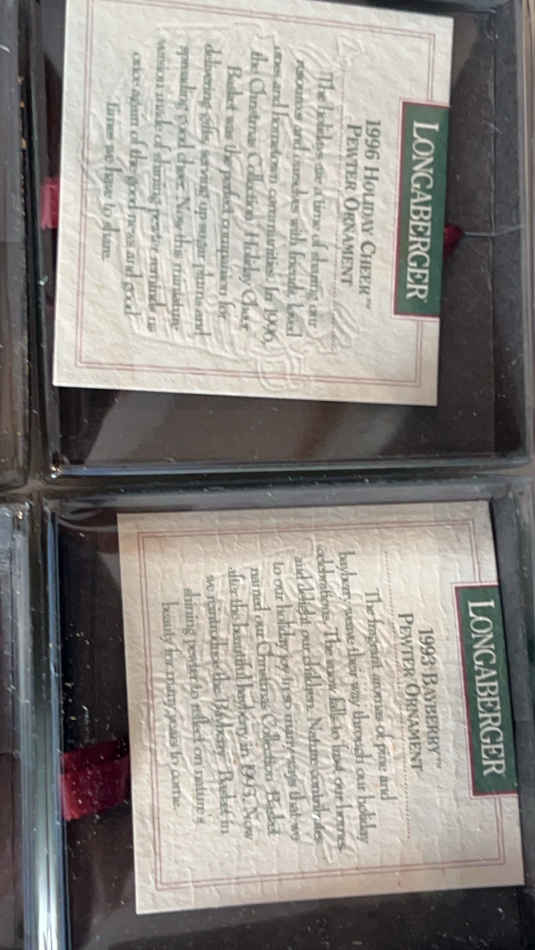 LONGABERGER
1996 HOLIDAY CHEER™
PEWTER ORNAMENT
The holidays are a time of sharing our
resources and ourselves with friends, loved
ones and hometown communities. In 1996,
the Christmas Collection Holiday Cheer
Basket was the perfect companion for
delivering gifts, serving up sugar plums and
spreading good cheer. Now this miniature
version made of shining pewter reminds us
once again of the good news and good
times we have to share.
LONGABERGER
1993 BAYBERRY™
PEWTER ORNAMENT
The fragrant aromas of pine and
bayberry weave their way through our holiday
celebrations. The snow falls to our homes
and delight our children. Nature contributes
to our holiday joy in so many ways that we
named our Christmas Collection Basket
after the beautiful bayberry in 1993. Now
we reintroduce the Bayberry Basket in
shining pewter to reflect on nature's
beauty for many years to come.